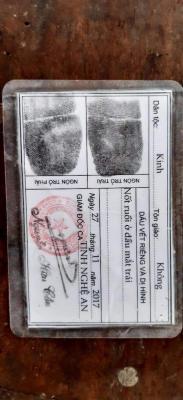 Dân tộc: Kinh Tôn giáo: Không
NGÓN TRỎ TRÁI
NGÓN TRỎ PHẢI
DẤU VẾT RIÊNG VÀ DỊ HÌNH
Nốt ruồi ở đầu mắt trái
Ngày 27 tháng 11 năm 2017
GIÁM ĐỐC CA TỈNH NGHỆ AN